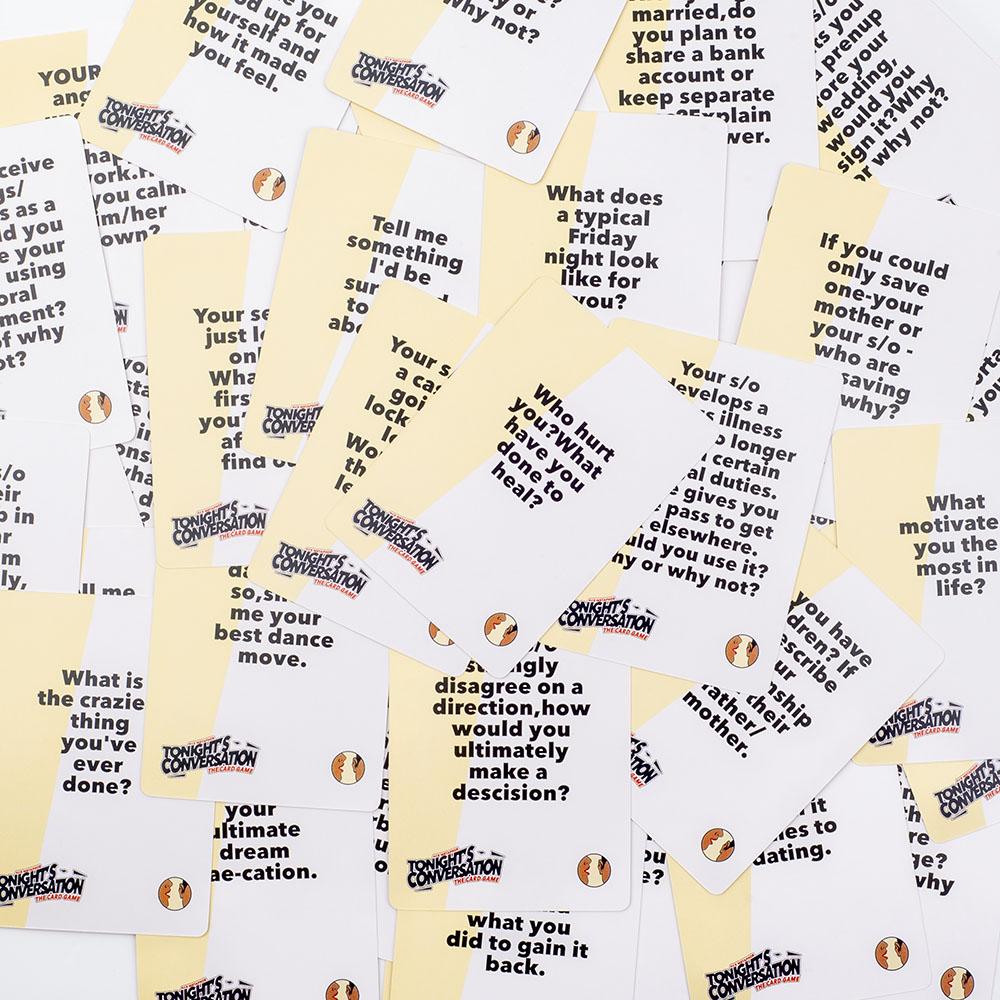 you
od up for
yourself and
how it made
you feel.
TONIGHT'S
CONVERSATION
THE CARD GAME
or
why not?
TONIGHT'S
CONVERSATION
THE CARD GAME
married,do
you plan to
share a bank
account or
keep separate
?Explain
wer.
you
prenup
your
wedding,
would you
sign it?Why
or why not?
YOUR
ang
ceive
gs/
s as a
ld you
e your
using
oral
ment?
of why
ot?
ork.
you calm
m/her
own?
Tell me
something
I'd be
sur
to
abo
TONIGHT'S
CONVER
What does
a typical
Friday
night look
like for
you?
If you could
only save
one-your
mother or
your s/o -
who are
saving
why?
Your s
just l
onl
Wha
firs
you
af
find o
TONIGHT'S
CONVERSATION
THE CARD GAME
Your s
a ca
goi
lock
Wo
th
le
TONIGHT'S
CONVERSATION
THE CARD GAME
Who hurt
you?What
have you
done to
heal?
TONIGHT'S
CONVERSATION
THE CARD GAME
Your s/o
develops a
illness
longer
certain
al duties.
e gives you
pass to get
elsewhere.
uld you use it?
hy or why not?
TONIGHT'S
CONVERSATION
THE CARD GAME
What
motivate
you the
most in
life?
ONIGHT'S
CONVERSATION
THE CARD GAME
s/o
eir
p in
ar
m
ly,
ll me
What is
the crazie
thing
you've
ever
done?
TONIGHT'S
CONVERSATION
THE CARD GAME
so,sh
me your
best dance
move.
TONIGHT'S
CONVERSATION
THE CARD GAME
disagree on a
direction,how
would you
ultimately
make a
descision?
TONIGHT'S
CONVERSATION
THE CARD GAME
you have
dren? If
escribe
ur
nship
their
father/
mother.
TONIGHT'S
CONVERSATION
your
ultimate
dream
ae-cation.
TONIGHT'S
CONVERSATION
what you
did to gain it
back.
it
es to
dating.
TONIGHT'S
CONVERSATION
THE CARD GAME
ge?
why